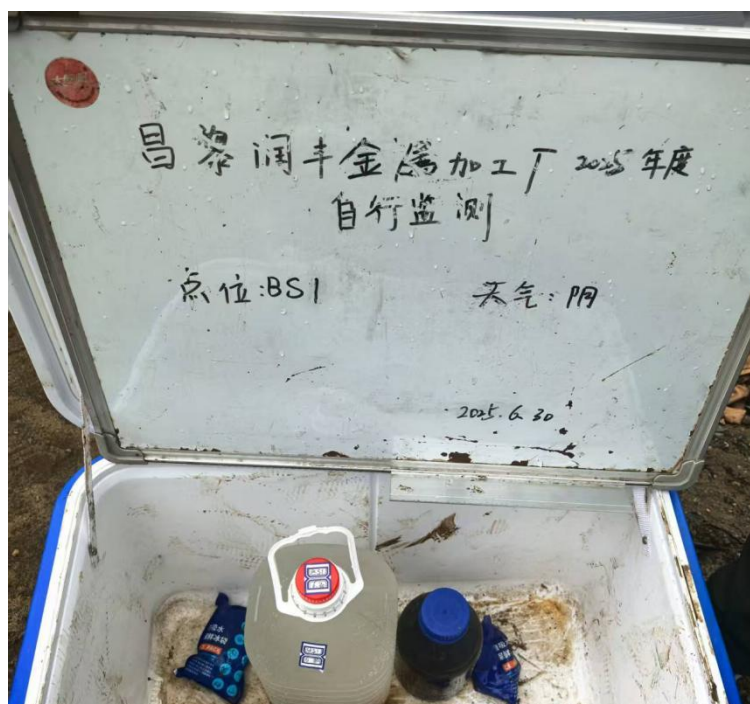 昌黎润丰金属加工厂 2025年度
自行监测
点位:BS1
天气:阴
2025.6.30